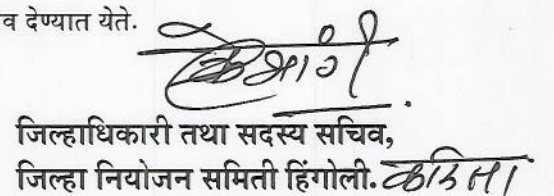 व देण्यात येते.
जिल्हाधिकारी तथा सदस्य सचिव,
जिल्हा नियोजन समिती हिंगोली. करिता